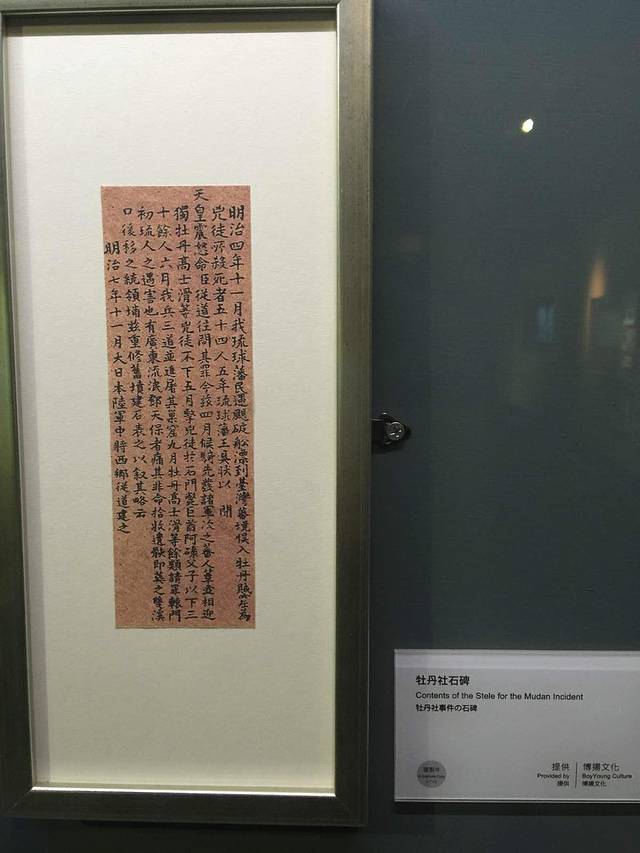 明治四年十一月我琉球藩民遭颶破舩漂到臺灣蕃境誤入牡丹賊窟為
兇徒所殺死者五十四人五年琉球藩王具狀以 聞
天皇震怒命臣從道往問其罪今茲四月候騎先發諸軍次之蕃人簞壺相迎
獨牡丹高士滑等兇徒不下五月擊兇徒於石門斃巨酋阿碌父子以下三
十餘人六月我兵三道並進屠其巢窟九月牡丹高士滑等餘類請罪轅門
初琉人之遇害也有廣東流氓鄧天保者痛其非命拾收遺骸即葬之雙溪
口後移之統領埔茲重修舊墳建石表之以叙其略云
明治七年十一月大日本陸軍中將西鄉從道建之
牡丹社石碑
Contents of the Stele for the Mudan Incident
牡丹社事件の石碑
複製件
提供 博揚文化
Provided by BoyYoung Culture
提供 博揚文化